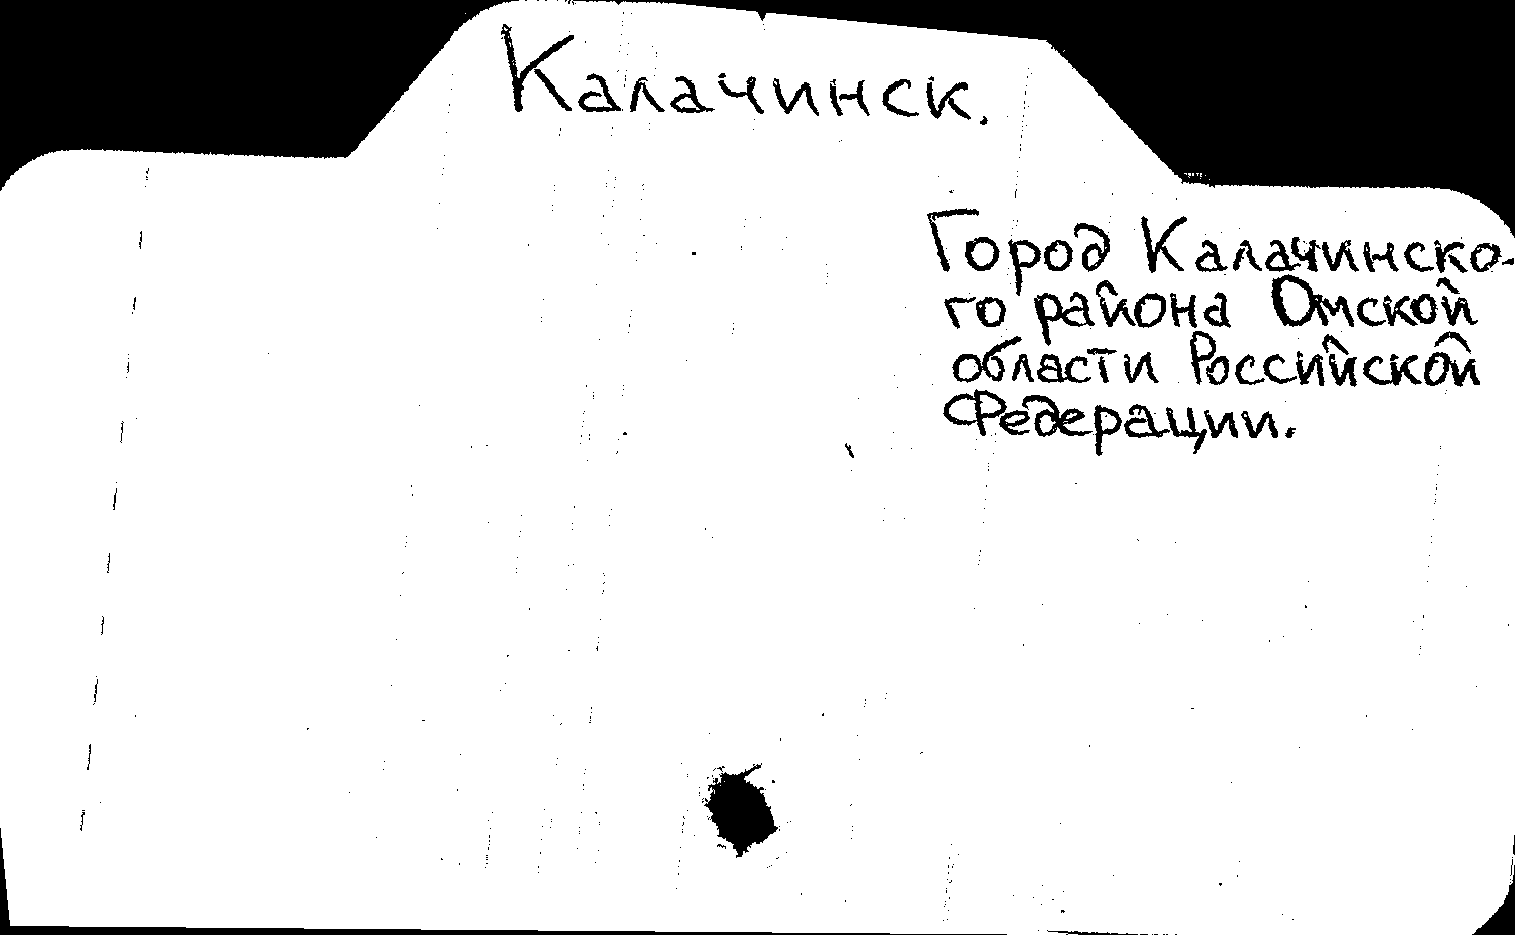 Калачинск.
Город Калачинско-
го района Омской
области Российской
Федерации.